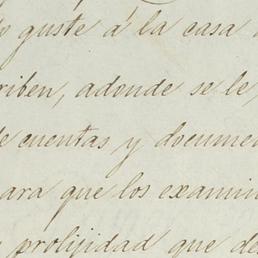 guste á la casa
riben, adonde se le
e cuentas y docume
ara que los examin
prolijidad que de